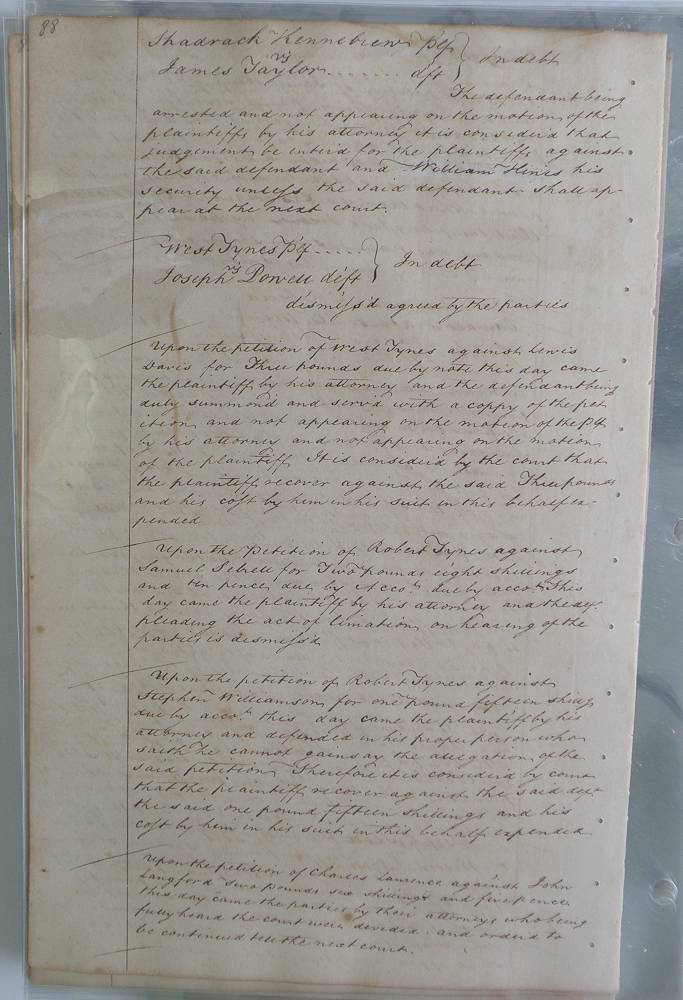 88
Shadrack Kennebrew plf } In debt
vs
James Taylor . . . . . . . dft
The defendant being
arrested and not appearing on the motion of the
plaintiff by his attorney it is consider'd that
judgement be enter'd for the plaintiff against
the said defendant and William Hines his
security unless the said defendant shall ap-
pear at the next court.
West Tynes plf . . . . . } In debt
vs
Joseph Powell deft
dismiss'd agreed by the parties
Upon the petition of West Tynes against Lewis
Davis for Three pounds due by note this day came
the plaintiff by his attorney and the defendant being
duly summond and serv'd with a coppy of the pet
ition and not appearing on the motion of the plf
by his attorney and not appearing on the motion
of the plaintiff It is consider'd by the court that
the plaintiff recover against the said Three pounds
and his cost by him in his suit in this behalf ex-
pended
Upon the Petition of Robert Tynes against
Samuel Sebrell for Two pounds eight shillings
and ten pence due by Acco.t due by acco.t This
day came the plaintiff by his attorney and the deft
pleading the act of limation on hearing of the
parties is dismiss'd
Upon the petition of Robert Tynes against
Stephen Williamson for one pound fifteen shills
due by acco.t this day came the plaintiff by his
attorney and defended in his proper person who
saith he cannot gainsay the allegation of the
said petition Therefore it is consider'd by court
that the plaintiff recover against the said deft
the said one pound fifteen shillings and his
cost by him in his suit in this behalf expended
Upon the petition of Charles Lawrence against John
Langford two pounds six shillings and five pence
this day came the parties by their attorneys who being
fully heard the court were divided and order'd to
be continued till the next court.